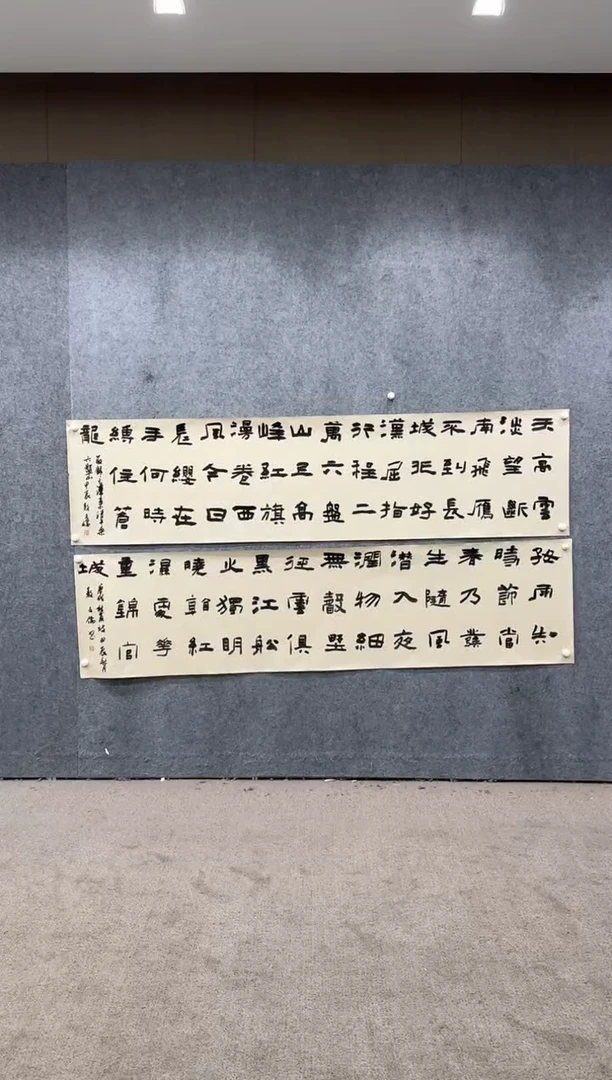 天高雲
淡望斷
南飛雁
不到長
城非好
漢屈指
行程二
萬六盤
山上高
峰紅旗
漫卷西
風今日
長纓在
手何時
縛住蒼
龍
六盤山甲辰
好雨知
時節當
春乃發
生隨風
潛入夜
潤物細
無聲野
徑雲俱
黑江船
火獨明
曉看紅
濕處花
重錦官
城